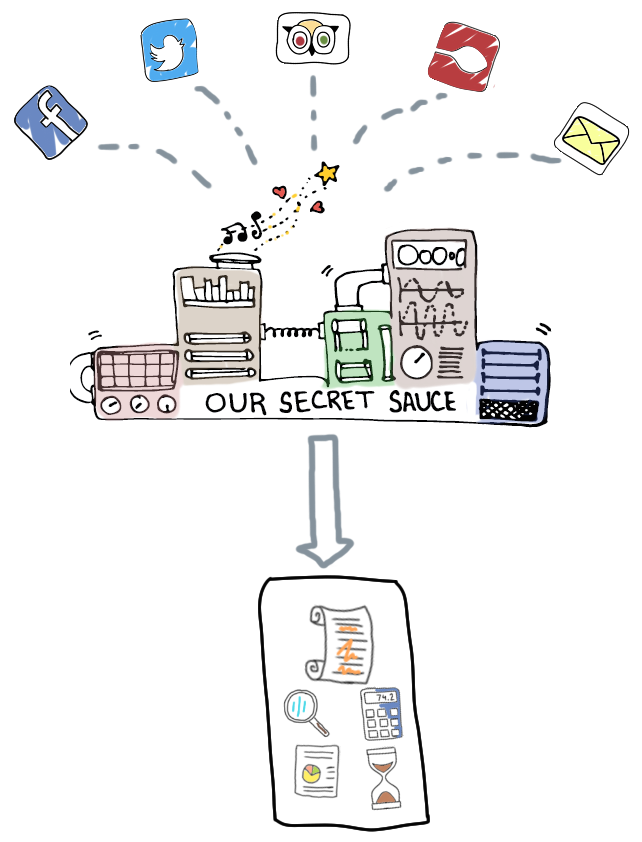 f
OUR SECRET SAUCE
74.2